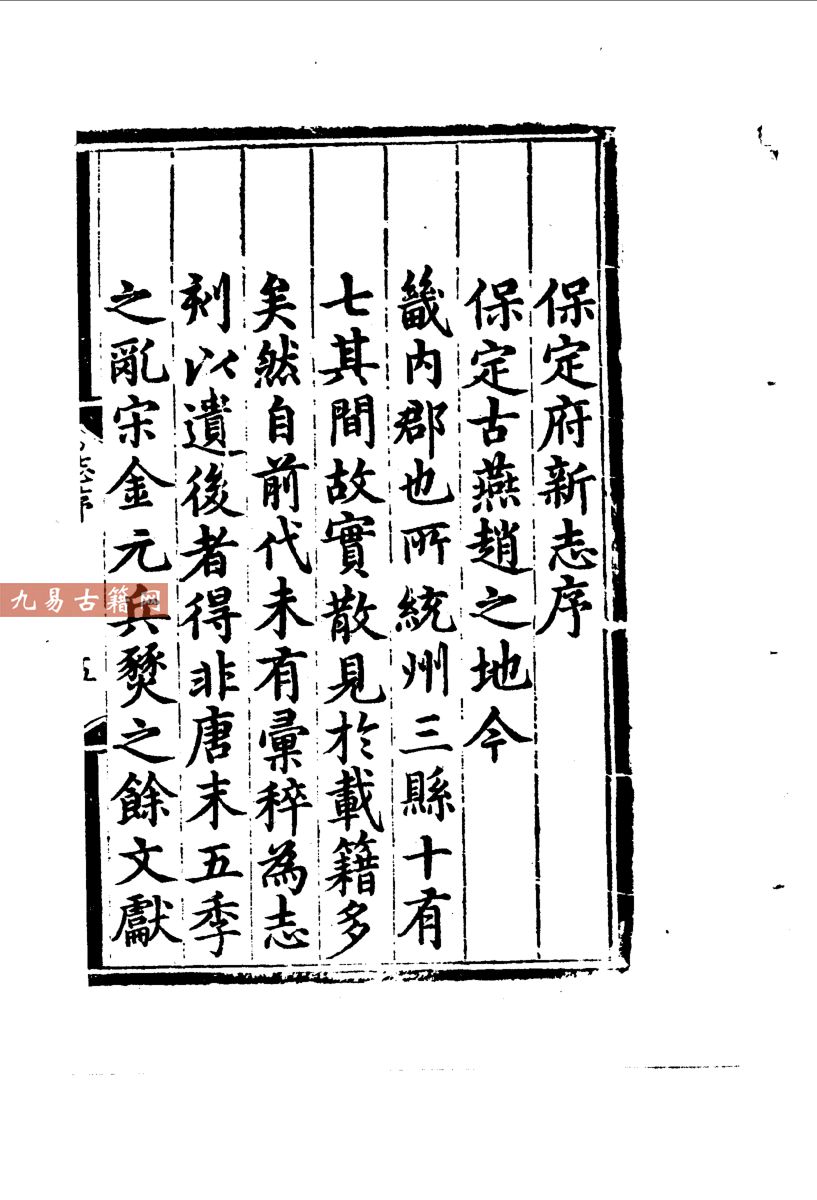 保定府新志序
保定古燕趙之地今
畿內郡也所統州三縣十有
七其間故實散見於載籍多
矣然自前代未有彙稡為志
刻以遺後者得非唐末五季
之亂宋金元兵燹之餘文獻
志序
五
九易古籍网